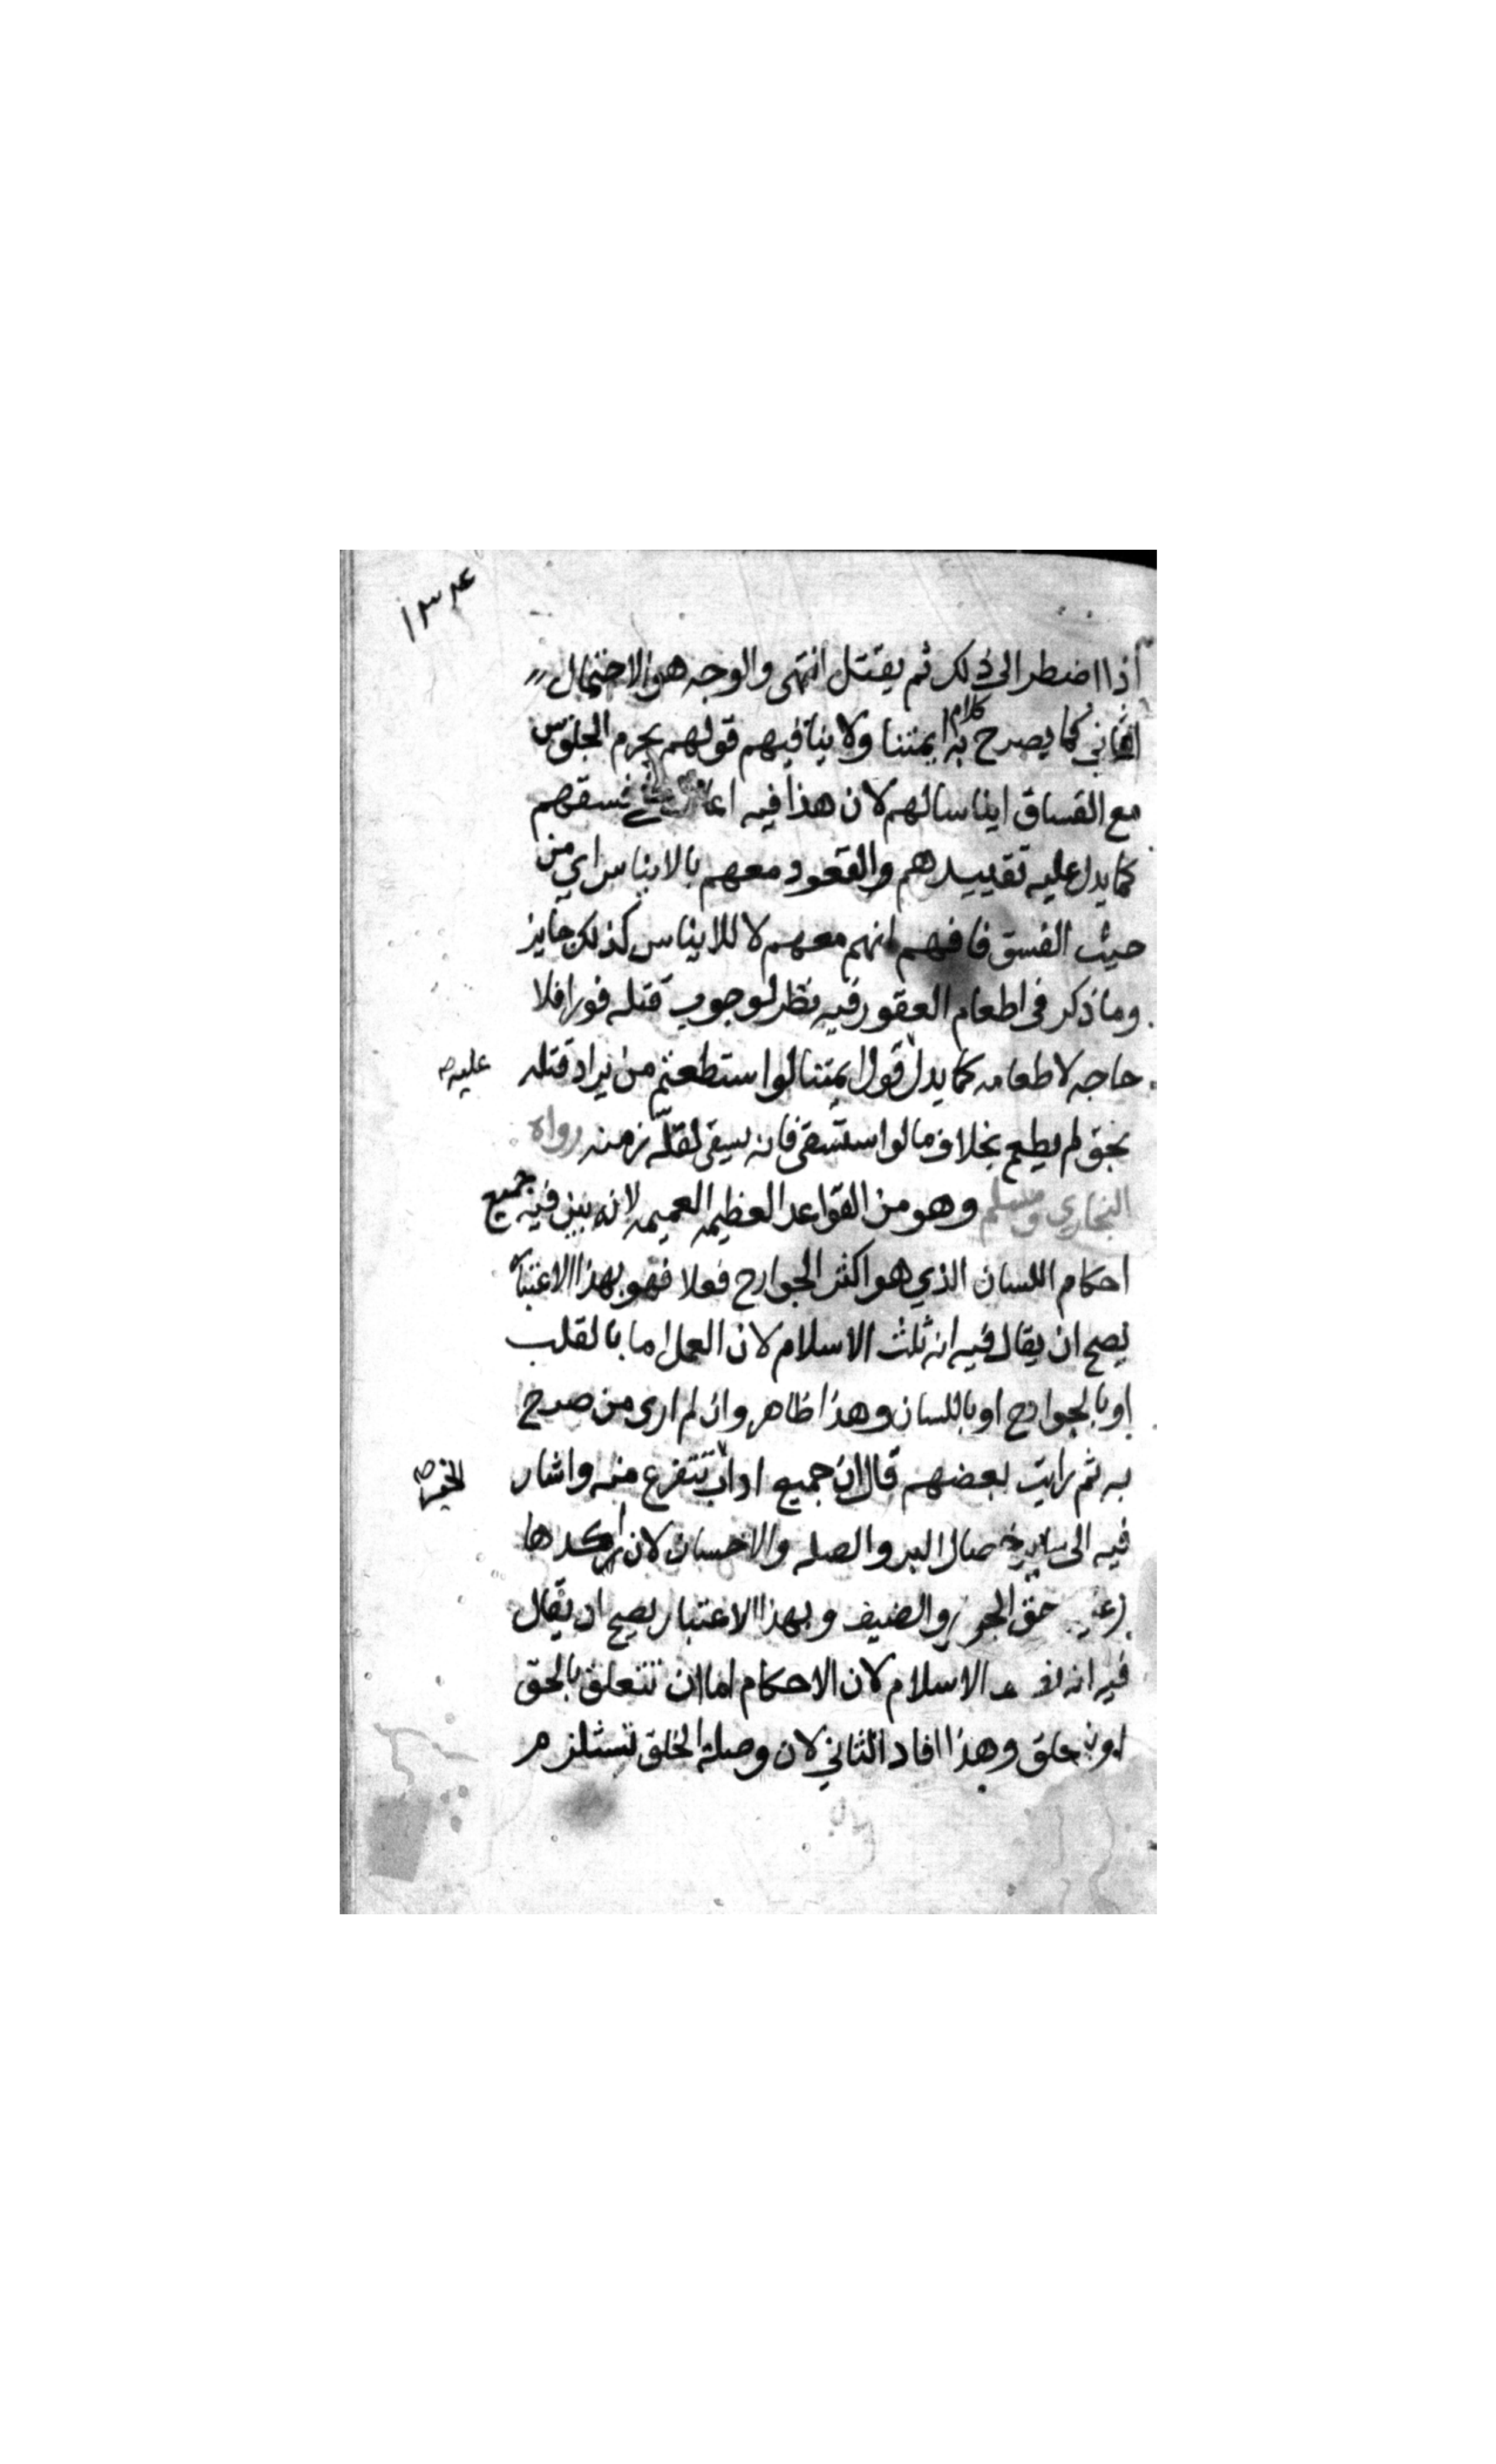 ١٣٤
اذا اضطر الى ذلك ثم يقتل انتهى والوجه هو الاحتمال
الثاني كما يصرح به كلام ايمتنا ولا ينافيهم قولهم يحرم الجلوس
مع الفساق ايناسا لهم لان هذا فيه على فسقهم
كما يدل عليه تقييدهم والقعود معهم بالايناس اي من
حيث الفسق فافهم انهم معهم لا للايناس كذلك جايز
وما ذكر في اطعام العقور فيه نظر لوجوب قتله فورا فلا
حاجه لاطعامه كما يدل قول ايمتنا لو استطعتم من يراد قتله
عليه صح
بحق لم يطعم بخلاف ما لو استسقى فانه يسقى لقلة زمنه رواه
البخاري ومسلم وهو من القواعد العظيمه العميمه لانه بين فيه جميع
احكام اللسان الذي هو اكثر الجوارح فعلا فهو بهذا الاعتبار
يصح ان يقال فيه انه ثلث الاسلام لان العمل اما بالقلب
او بالجوارح او باللسان وهذا ظاهر وان لم ارى من صرح
به ثم رايت بعضهم قال ان جميع اداب تتفرع منه واشار
الخير صح
فيه الى ساير خصال البر والصله والاحسان لان اكدها
حق الجوار والضيف وبهذا الاعتبار يصح ان يقال
فيه انه الاسلام لان الاحكام اما ان تتعلق بالحق
او بالخلق وهذا افاد الثاني لان وصلة الخلق تستلزم